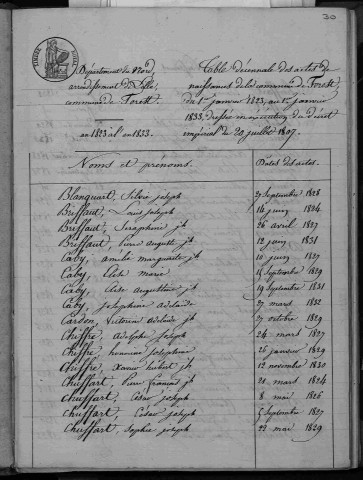 30
TIMBRE ROYAL
Département du Nord,
arrondissement de Lille,
commune de Forest.
an 1823 al'an 1833.
Table décennale des actes de
naissances de la commune de Forest,
du 1er janvier 1823, au 1er janvier
1833, dressée en exécution du décret
impérial du 20 juillet 1807.
Noms et prénoms. Dates des actes.
Blanquart, Silvie joseph 29 Septembre 1828
Briffaut, Louis joseph 14 juin 1824
Briffaut, Seraphine jh 26 avril 1827
Briffaut, Pierre auguste jh 12 juin 1831
Caby, amélie marguerite jh 10 juin 1827
Caby, marie 18 Septembre 1829
Caby, augustin jh 19 Septembre 1831
Caby, josephine adélaide 27 mars 1832
Cardon, Victoire adélaide jh 27 octobre 1829
Chiffre, adolphe joseph 24 mars 1827
Chiffre, honorine joséphine 26 janvier 1829
Chiffre, Xavier hubert jh 12 novembre 1830
Chuffart, Pierre françois jh 20 mars 1824
Chuffart, César joseph 8 mai 1826
Chuffart, César joseph 5 Septembre 1827
Chuffart, Sophie joseph 22 mai 1829